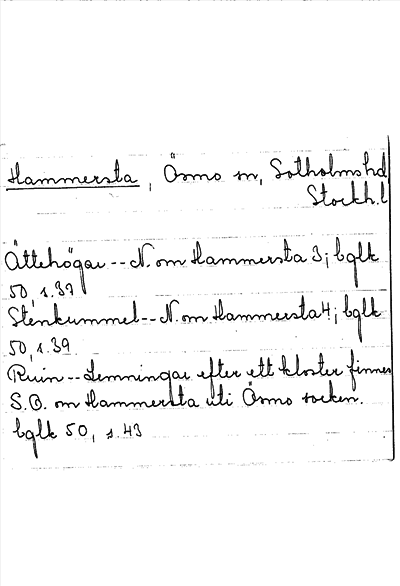 Hammersta, Ösmo sn, Sotholms hd
Stockh. l
Ättehögar -- N. om Hammersta 3; bglk
50, s. 37
Stenkummel -- N. om Hammersta 4; bglk
50, s. 39
Ruin -- Lemningar efter ett kloster finnes
S.O. om Hammersta uti Ösmo socken.
bglk 50, s. 43